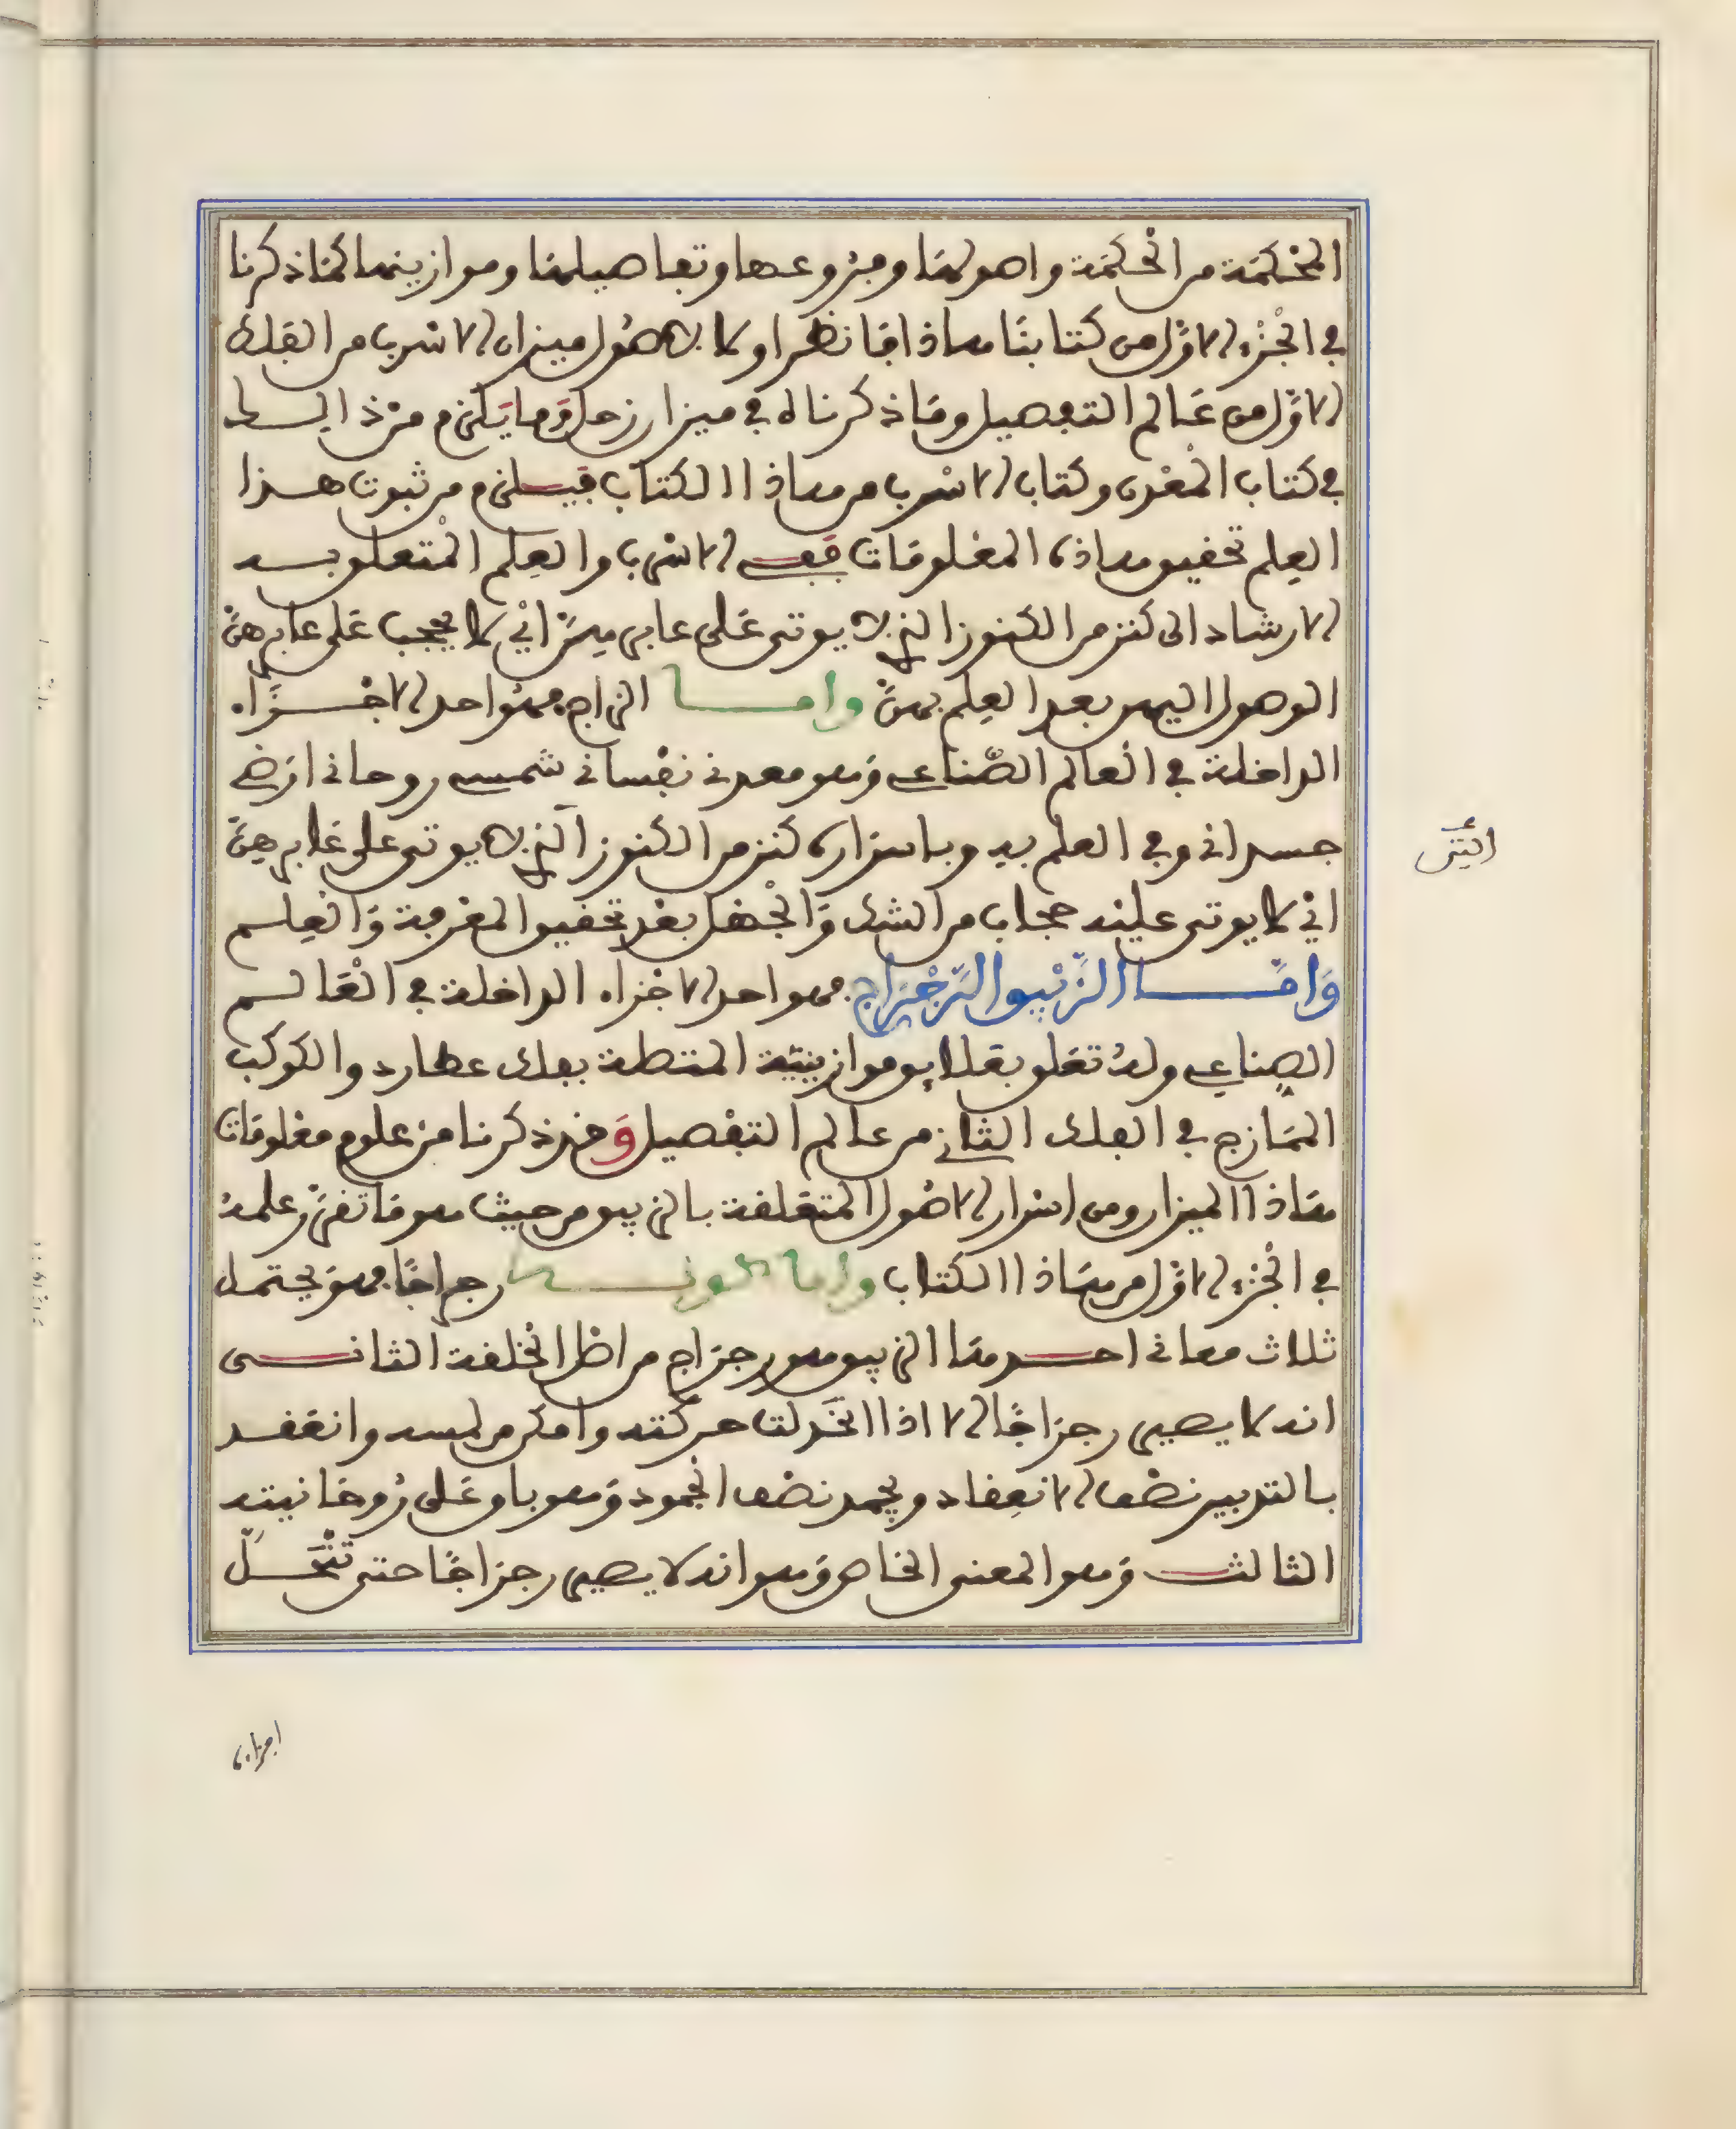 المحكمة من الحكمة واصولها وفروعها وتفاصيلها وموازينها كما ذكرنا
في الجزء الاول من كتابنا هذا فانظر اولا لاصول ميزان الاسرب من الفلك
الاول من عالم التفصيل وما ذكرناه في ميزان زحل وما يلزم من ذلك
في كتاب المعدن وكتاب الاسرب من هذا الكتاب فيلزم من ثبوت هذا
العلم تحقيق هذه المعلومات ففي الاسرب والعلم المتعلق به
الارشاد الى كنز من الكنوز التي لا يوتى على عابرهن اي لا يحجب على عابرهن
الوصول اليهن بعد العلم بهن واما الزاج فهو احد الاجزاء
الداخلة في العالم الصناعي وهو معدني نفساني شمسي روحاني ارضي
جسداني وفي العلم به وباسراره كنز من الكنوز التي لا يوتى على غابرهن
اي لا يوتى عليه حجاب من الشك والجهل بعد تحقيق المعرفة والعلم
واما الزئبق الرجراج فهو احد الاجزاء الداخلة في العالم
الصناعي وله تعلق بعلايق موازينية المتصلة بفلك عطارد والكوكب
الممازج في الفلك الثاني من عالم التفصيل وقد ذكرنا من علوم معلومات
هذا الميزان ومن اسرار الاصول المتعلقة بالزيبق من حيث هو ما تعين علمه
في الجزء الاول من هذا الكتاب واما كونه رجراجا فهو يحتمل
ثلاث معاني احدها الزيبق هو رجراج من اصل الخلقة الثاني
انه لا يصير رجراجا الا اذا انخزلت حركته وامكن لمسه وانعقد
بالتدبير نصف الانعقاد ويجمد نصف الجمود وهو باق على روحانيته
الثالث وهو المعنى الخاص وهو انه لا يصير رجراجا حتى تنحل
اجزاءه